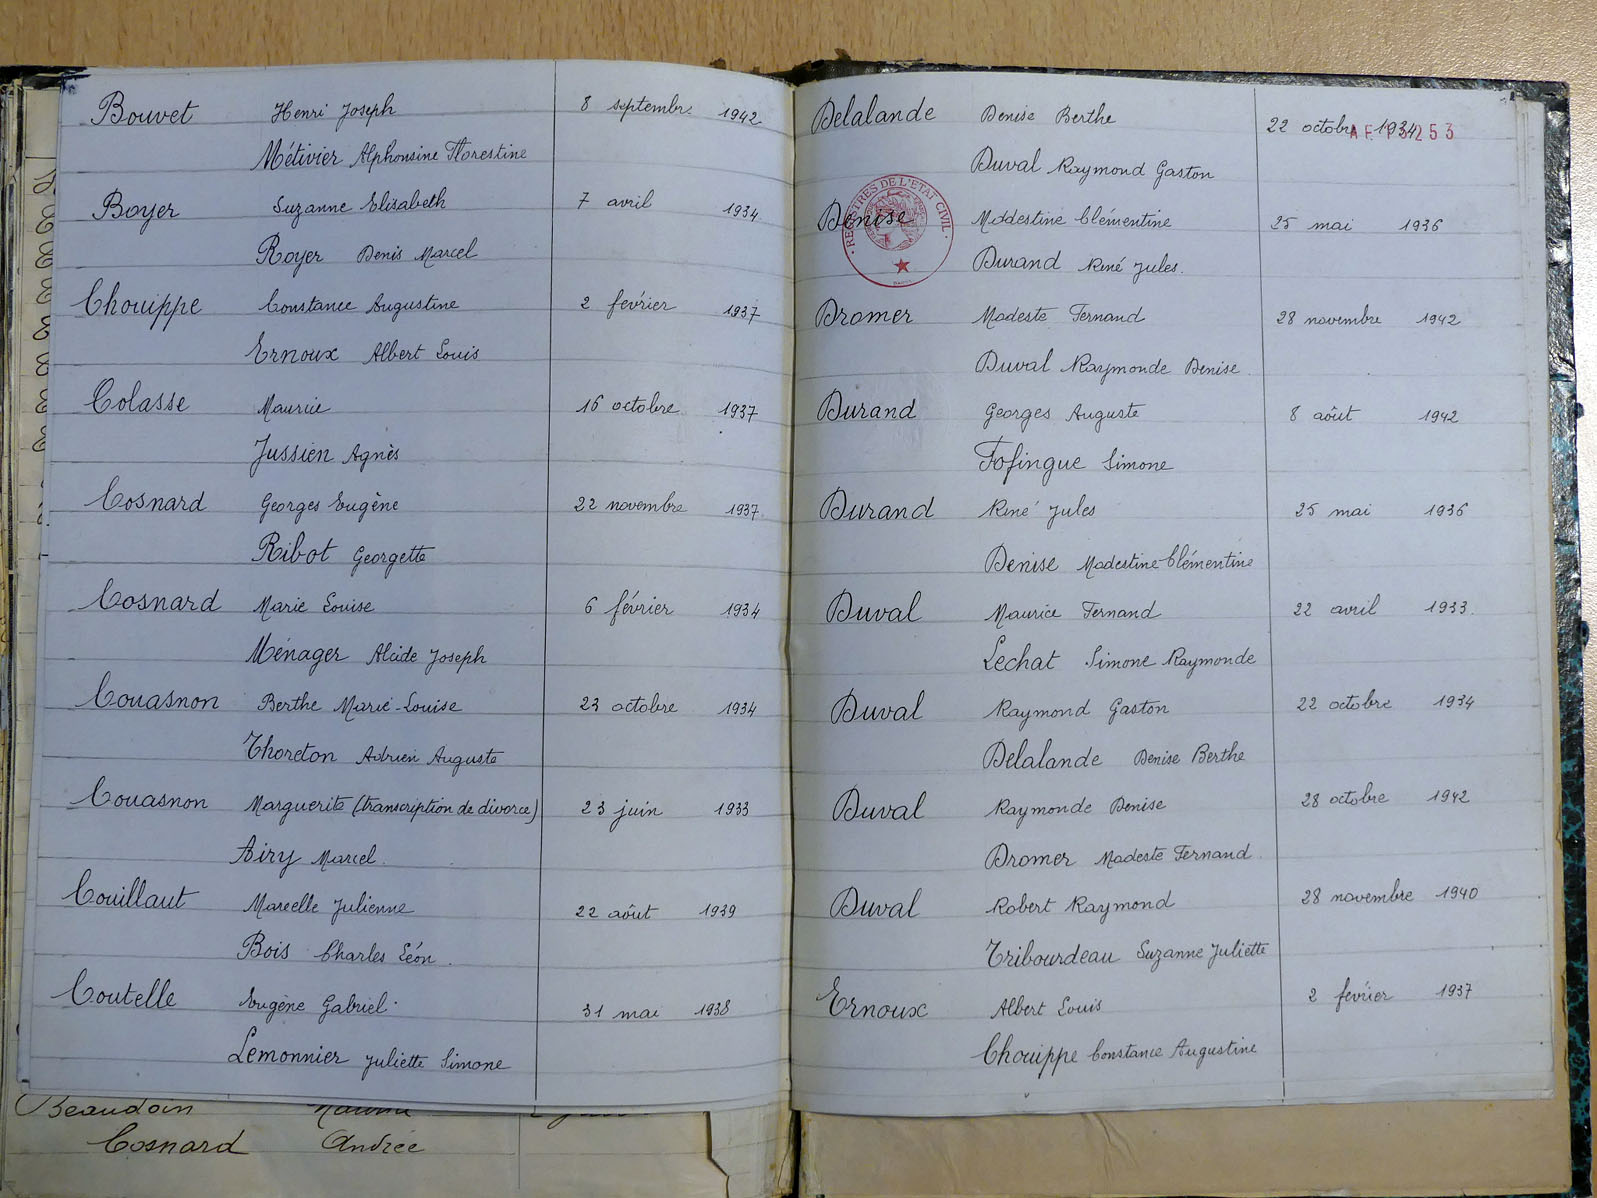 Bouvet Henri Joseph 8 septembre 1942
Métivier Alphonsine Florestine
Boyer Suzanne Elisabeth 7 avril 1934
Royer Denis Marcel
Chouippe Constance Augustine 2 février 1937
Ernoux Albert Louis
Colasse Maurice 16 octobre 1937
Jussien Agnès
Cosnard Georges Eugène 22 novembre 1937
Ribot Georgette
Cosnard Marie Louise 6 février 1934
Ménager Alcide Joseph
Couasnon Berthe Marie-Louise 23 octobre 1934
Thoreton Adrien Auguste
Couasnon Marguerite (transcription de divorce) 23 juin 1933
Airy Marcel.
Couillaut Marcelle Julienne 22 août 1939
Bois Charles Léon.
Coutelle Eugène Gabriel 31 mai 1938
Lemonnier Juliette Simone
Beaudoin
Cosnard Andrée
Delalande Denise Berthe 22 octobre 1934
Duval Raymond Gaston
REGISTRES DE L'ETAT CIVIL
Denise Modestine Clémentine 25 mai 1936
Durand René Jules.
Dromer Modeste Fernand 28 novembre 1942
Duval Raymonde Denise.
Durand Georges Auguste 8 août 1942
Fofingue Simone
Durand René Jules 25 mai 1936
Denise Modestine-Clémentine
Duval Maurice Fernand 22 avril 1933.
Lechat Simone Raymonde
Duval Raymond Gaston 22 octobre 1934
Delalande Denise Berthe
Duval Raymonde Denise 28 octobre 1942
Dromer Modeste Fernand.
Duval Robert Raymond 28 novembre 1940
Tribourdeau Suzanne Juliette
Ernoux Albert Louis 2 février 1937
Chouippe Constance Augustine